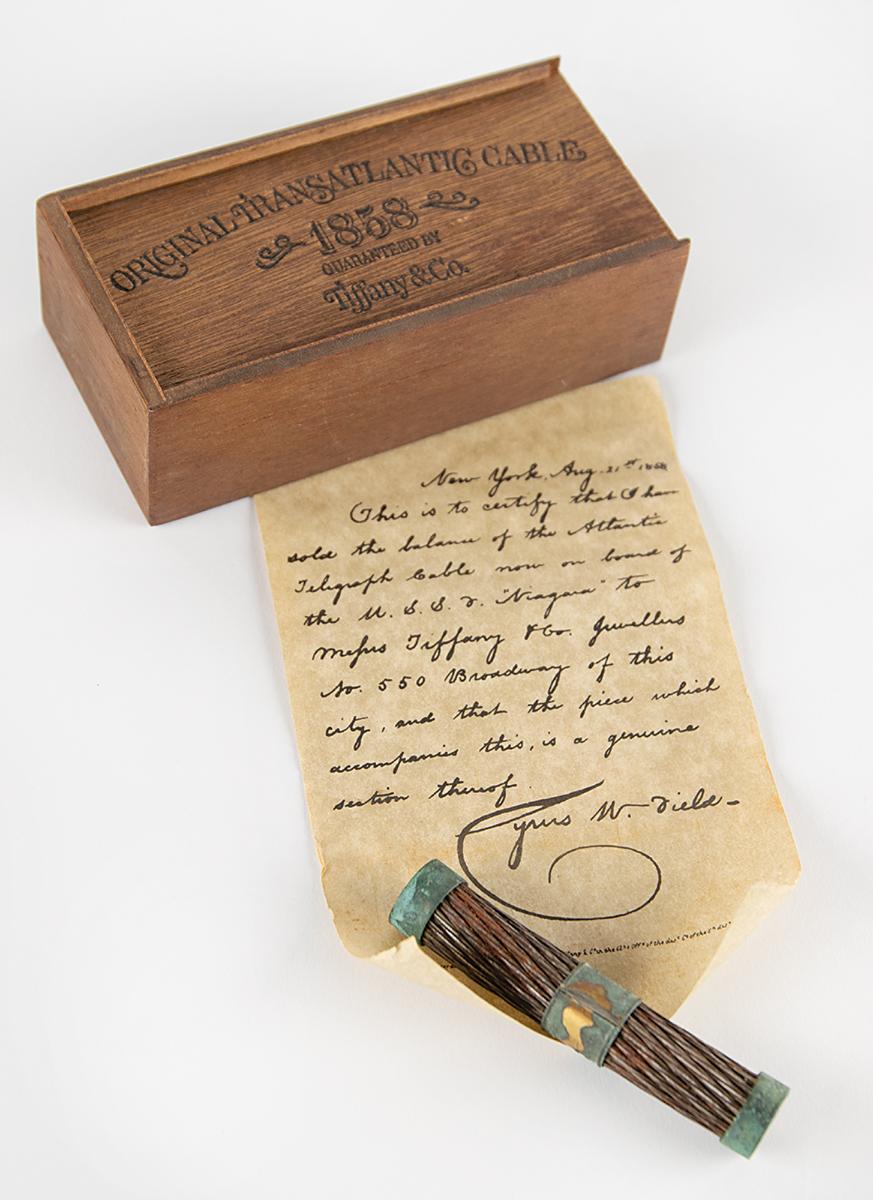 ORIGINAL TRANSATLANTIC CABLE
1858
GUARANTEED BY
Tiffany & Co.
New York, Aug. 21st 1858
This is to certify that I have
sold the balance of the Atlantic
Telegraph Cable now on board of
the U. S. S. F. "Niagara" to
Messrs Tiffany & Co. Jewellers
No. 550 Broadway of this
city, and that the piece which
accompanies this, is a genuine
section thereof.
Cyrus W. Field